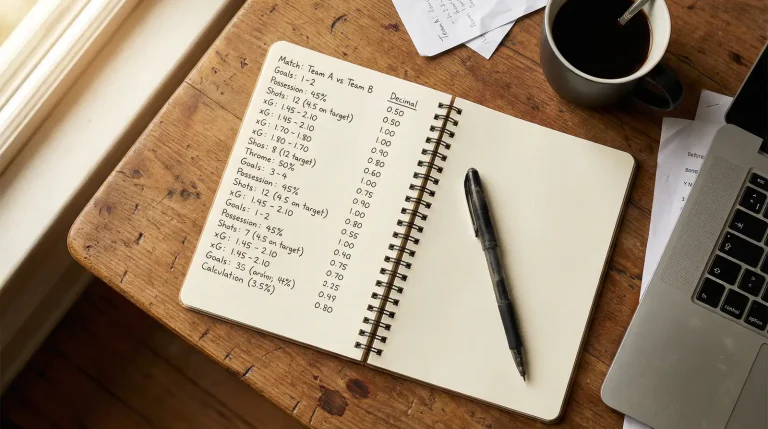 Match: Team A vs Team B Decimal
Goals: 1-2 0.50
Possession: 45% 0.50
Shots: 12 (4.5 on target) 1.00
xG: 1.45 - 2.10 1.00
xG: 1.45 - 2.10 0.90
xG: 1.70 - 1.80 0.80
xG: 1.80 - 1.70 0.60
Shos: 8 (12 target) 1.00
Throme: 50% 0.75
Goals: 3-4 0.90
Possession: 45% 1.00
Shots: 12 (4.5 on target) 0.80
xG: 1.45 - 2.10 0.55
Goals: 1-2 1.00
Possession: 45% 0.40
Shots: 7 (4.5 on target) 0.75
xG: 1.45 - 2.10 0.70
xG: 1.45 - 2.10 2.25
Goals: 3S 44%) 0.49
Calculation (3.5%) 0.80
fn
control
option